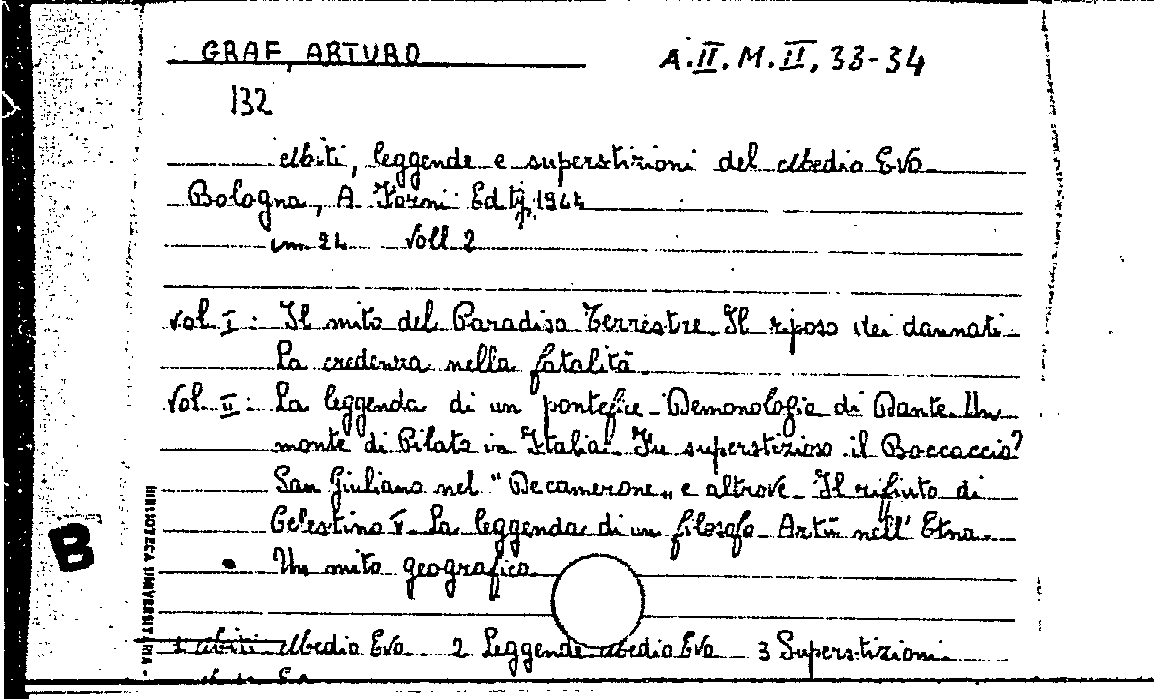 GRAF, ARTURO A.II.M.II, 33-34
132
Miti, leggende e superstizioni del Medio Evo
Bologna, A. Forni Ed. Tip. 1964
cm 24 Voll 2
Vol I: Il mito del Paradiso Terrestre. Il riposo dei dannati.
La credenza nella fatalità.
Vol. II: La leggenda di un pontefice - Demonologia di Dante. Un
monte di Pilato in Italia. Fu superstizioso il Boccaccio?
San Giuliano nel "Decamerone" e altrove - Il rifiuto di
Celestino V. La leggenda di un filosofo. Artù nell'Etna.
Un mito geografico
1 Miti Medio Evo 2 Leggende Medio Evo 3 Superstizioni
B
BIBLIOTECA UNIVERSITARIA